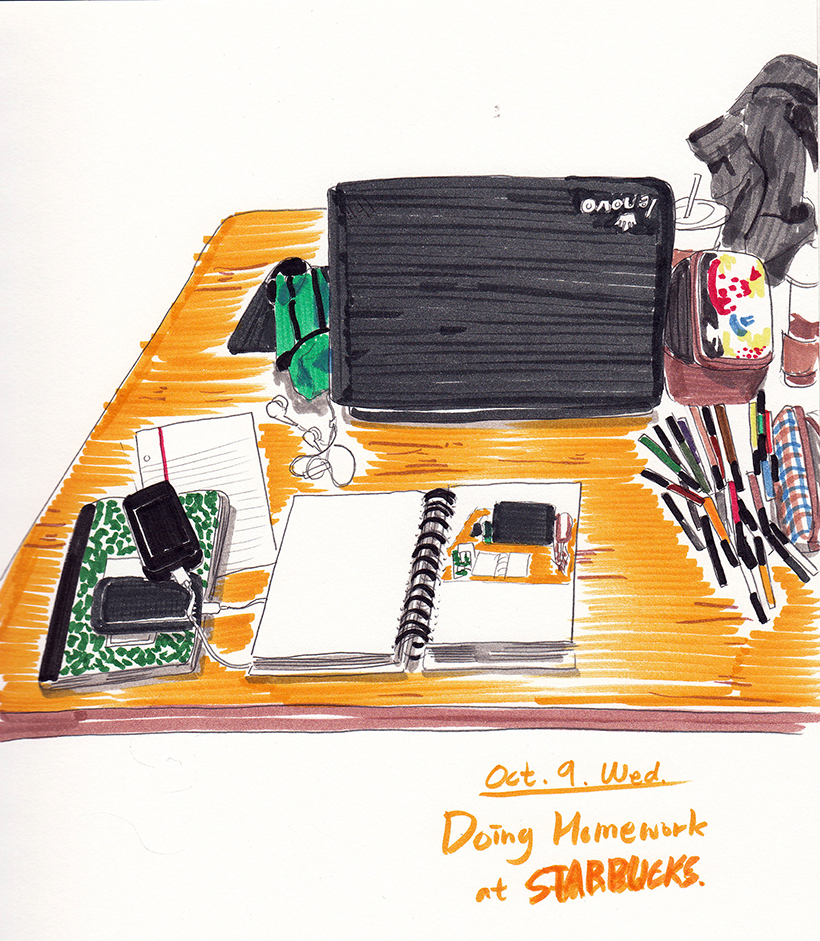 lenovo
Oct. 9. Wed.
Doing Homework
at STARBUCKS.